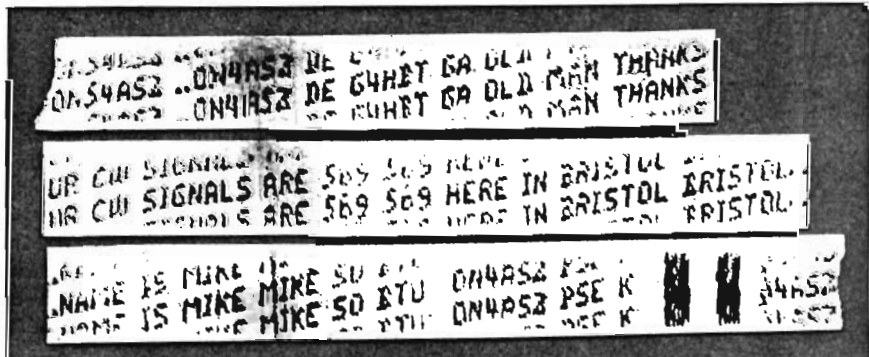 ON4ASZ ..ON4ASZ DE G4HBT GA OLD MAN THANKS
UR CW SIGNALS ARE 569 569 HERE IN BRISTOL BRISTOL.
.NAME IS MIKE MIKE SO BTU ON4ASZ PSE K